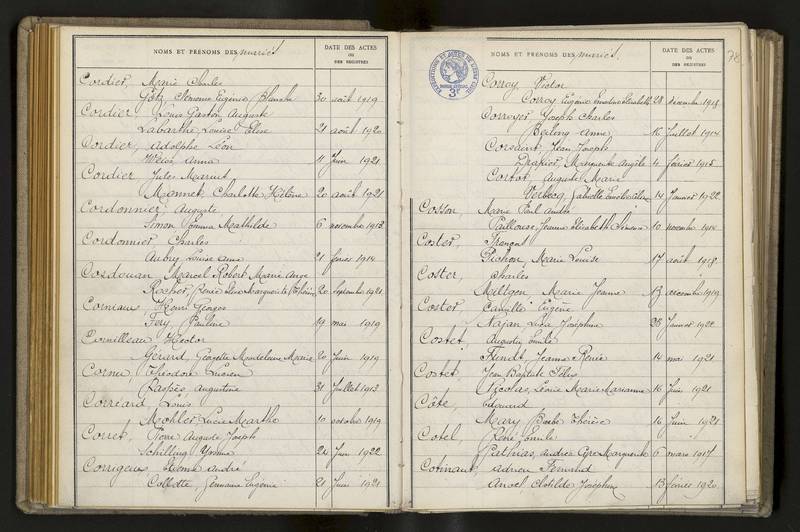 NOMS ET PRÉNOMS DES mariés
DATE DES ACTES
OU
DES REGISTRES
Cordier, Marie Charles
Götz, Clémence Eugénie Blanche 30 août 1919
Cordier, Louis Gaston Auguste
Labarthe Louise Elise 21 août 1920
Cordier, Adolphe Léon
Weiss Anna 11 Juin 1921
Cordier Jules
Monnet, Charlotte Hélène 20 août 1921
Cordonnier Auguste
Simon Emma Mathilde 6 novembre 1912
Cordonnier Charles
Aubry Louise Anna 21 février 1914
Cordouan Marcel Robert Marie Ange
Rocher, Renée Marguerite 20 Septembre 1921
Corneaux Henri Georges
Fery, Pauline 19 mai 1919
Cornilleau Hector
Gérard, Madeleine Marie 20 Juin 1919
Cornu, Théodore Lucien
Augustine 31 Juillet 1912
Corréard Louis
Mohler Lucie Marthe 10 octobre 1919
Corret, Pierre Auguste Joseph
Schilling Yvonne 24 Juin 1922
Corrigeux, Etienne André
Collotte, Germaine Eugénie 21 Juin 1921
NOMS ET PRÉNOMS DES mariés
DATE DES ACTES
OU
DES REGISTRES
78
3F
Corroy Victor
Corroy Eugénie Emilie Elisabeth 28 décembre 1918
Corroyer Joseph Charles
Anna 16 Juillet 1914
Corsaint, Jean Joseph
Drapier, Marguerite Angèle 4 février 1915
Cortot, Auguste Marie
Verbecq, 14 Janvier 1922
Cosson, Marie Paul André
Jeanne Elisabeth Simone 10 novembre 1914
Coster, François
Pichron, Marie Louise 17 août 1918
Coster, Charles
Miltgen Marie Jeanne 13 décembre 1919
Coster Camille Eugène
Nazan, Lucie Joséphine 28 Janvier 1922
Costet, Augustin Emile
Fundt, Jeanne Renée 14 mai 1921
Costet Jean Baptiste Félix
Nicolas, Léonie Marie Marianne 16 Juin 1921
Côte, Edouard
Mary, Barbe Thérèse 16 Juin 1921
Cotel, René Emile
Pathias, Andrée Marguerite 6 mars 1917
Cotinaut, Adrien Fernand
Clotilde Joséphine 13 février 1920